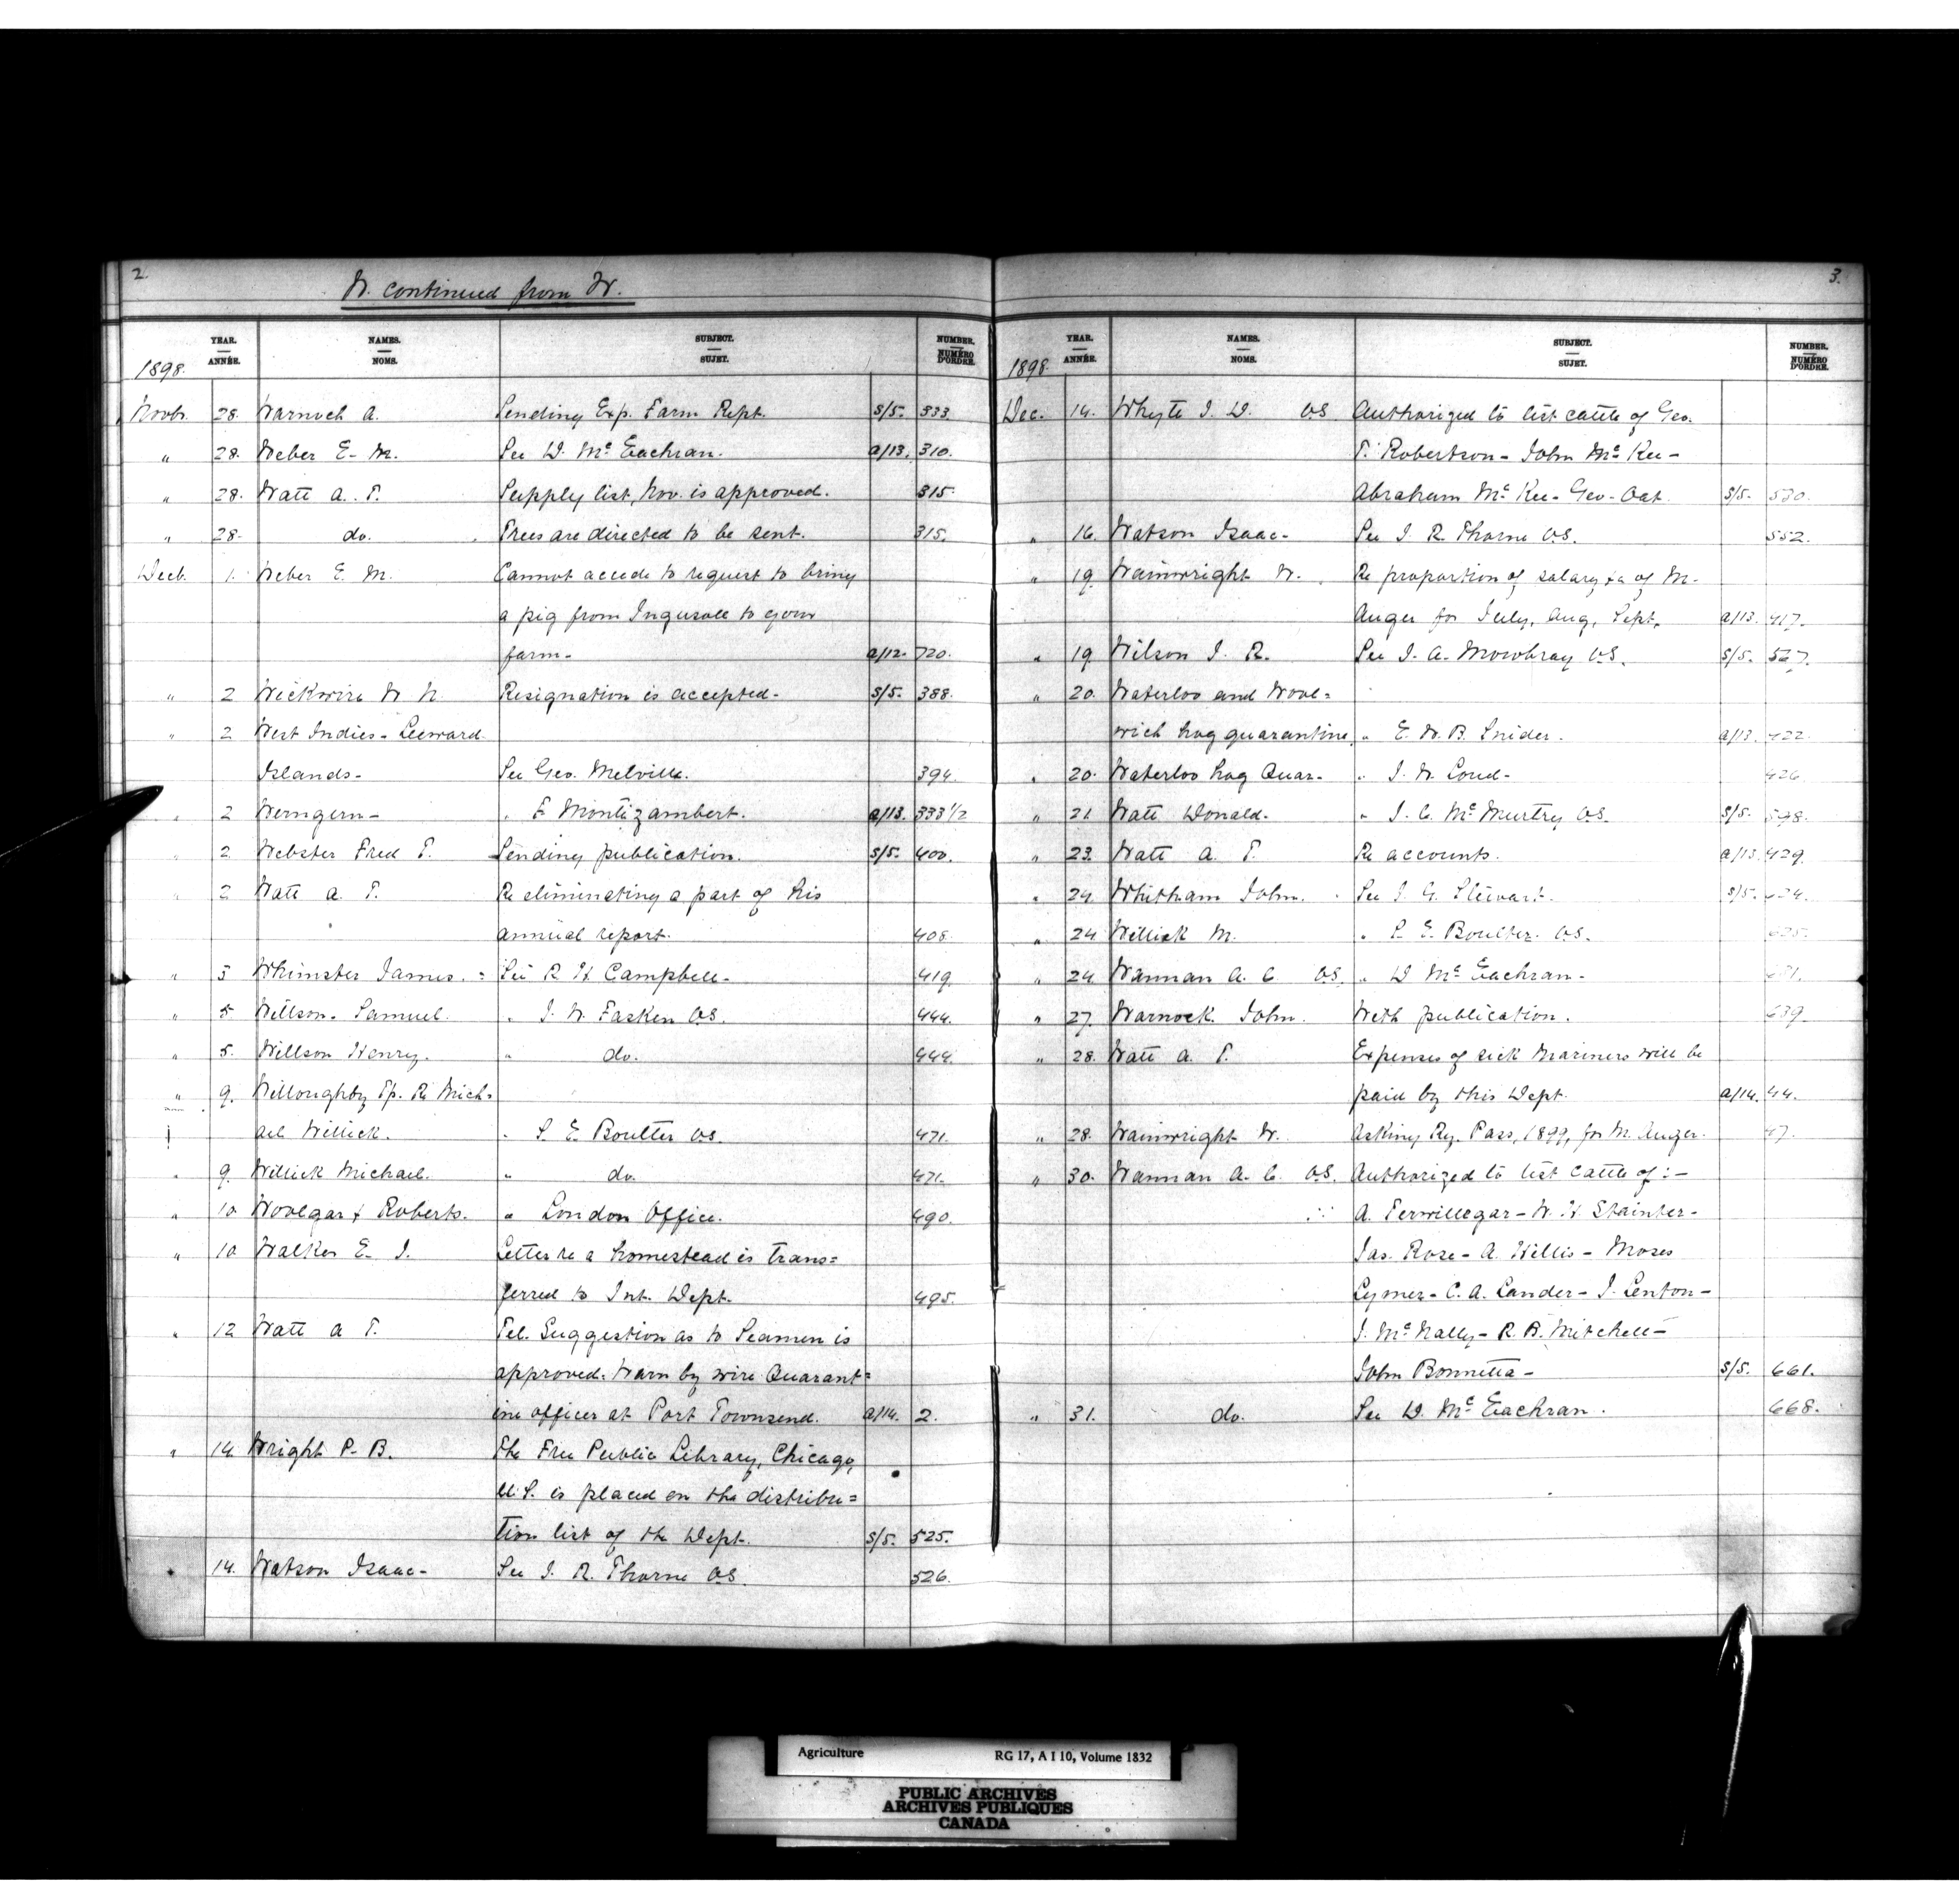 2.
W. continued from W.
YEAR. ANNÉE. NAMES. NOMS. SUBJECT. SUJET. NUMBER. NUMÉRO D'ORDRE.
1898.
Novb. 28. Warnock A. Sending Exp. Farm Rept. S/5. 333
" 28. Weber E. M. See D. McEachran. A/13. 310.
" 28. Watt A. T. Supply list, Nov. is approved. 315.
" 28. do. Trees are directed to be sent. 315.
Decb. 1. Weber E. M. Cannot accede to request to bring
a pig from Ingersoll to your
farm- A/12. 720.
" 2 Wickwire W. N. Resignation is accepted- S/5. 388.
" 2 West Indies - Leeward
Islands- See Geo. Melville. 394.
" 2 " F Montizambert. A/13. 333 1/2
" 2 Webster Fred T. Sending publication. S/5. 400.
" 2 Watt A. T. Re eliminating a part of his
annual report. 408.
" 5 Whimster James. = See R H Campbell- 419.
" 5. Willson. Samuel. " J. W. Fasken V.S. 444.
" 5. Willson Henry. " do. 444.
" 9. Willoughby Tp. Re Mich=
ael Willick. " S. E. Boulter V.S. 471.
" 9. Willick Michael. " do. 471.
" 10 Woolgar & Roberts. " London Office. 490.
" 10 Walker E. J. Letter re a homestead is trans=
ferred to Int. Dept. 495.
" 12 Watt A T. Tel. Suggestion as to Seamen is
approved. Warn by wire Quarant=
ine officer at Port Townsend. A/14. 2.
" 14 Wright P. B. The Free Public Library, Chicago,
U.S. is placed on the distribu=
tion list of the Dept. S/5. 525.
" 14. Watson Isaac- See J. R. Thorne V.S. 526.
3.
YEAR. ANNÉE. NAMES. NOMS. SUBJECT. SUJET. NUMBER. NUMÉRO D'ORDRE.
1898.
Dec. 14. Whyte J. D. V.S Authorized to test cattle of Geo.
T. Robertson - John McKee -
Abraham McKee - Geo. Oat. S/5. 530.
" 16. Watson Isaac- See J. R. Thorne V.S. 552.
" 19. Wainwright W. Re proportion of salary, &c of M.
Auger for July, Aug, Sept. A/13. 417.
" 19 Wilson J. R. See J. A. Mowbray V.S. S/5. 567.
" 20. Waterloo and Wool=
wich hog quarantine. " E. W. B. Snider. A/13. 422.
" 20. Waterloo hog Quar- " J. W. Loud- 426.
" 21 Watt Donald. " J. C. McMurtry V.S. S/5. 598.
" 23. Watt A. T. Re accounts. A/13. 429.
" 24. Whitham John. See J. G. Stewart. S/5. 624.
" 24 Willick M. " S. E. Boulter. V.S. 625.
" 24. Warman A. C V.S. " D McEachran- 631.
" 27. Warnock. John. With publication. 639.
" 28. Watt A. T. Expenses of sick Mariners will be
paid by this Dept. A/14. 44.
" 28. Wainwright W. Asking Ry. Pass, 1899, for M. Auger. 47.
" 30. Warman A. C. V.S. Authorized to test cattle of :-
A. Terwillegar - W. H. Stainter -
Jas. Rose - A. Willis - Moses
Lymer - C. A. Lander - J. Lenton -
J. McNally - R. B. Mitchell -
John Bonnetta - S/5. 661.
" 31. do. See D. McEachran. 668.
Agriculture RG 17, A I 10, Volume 1832
PUBLIC ARCHIVES
ARCHIVES PUBLIQUES
CANADA